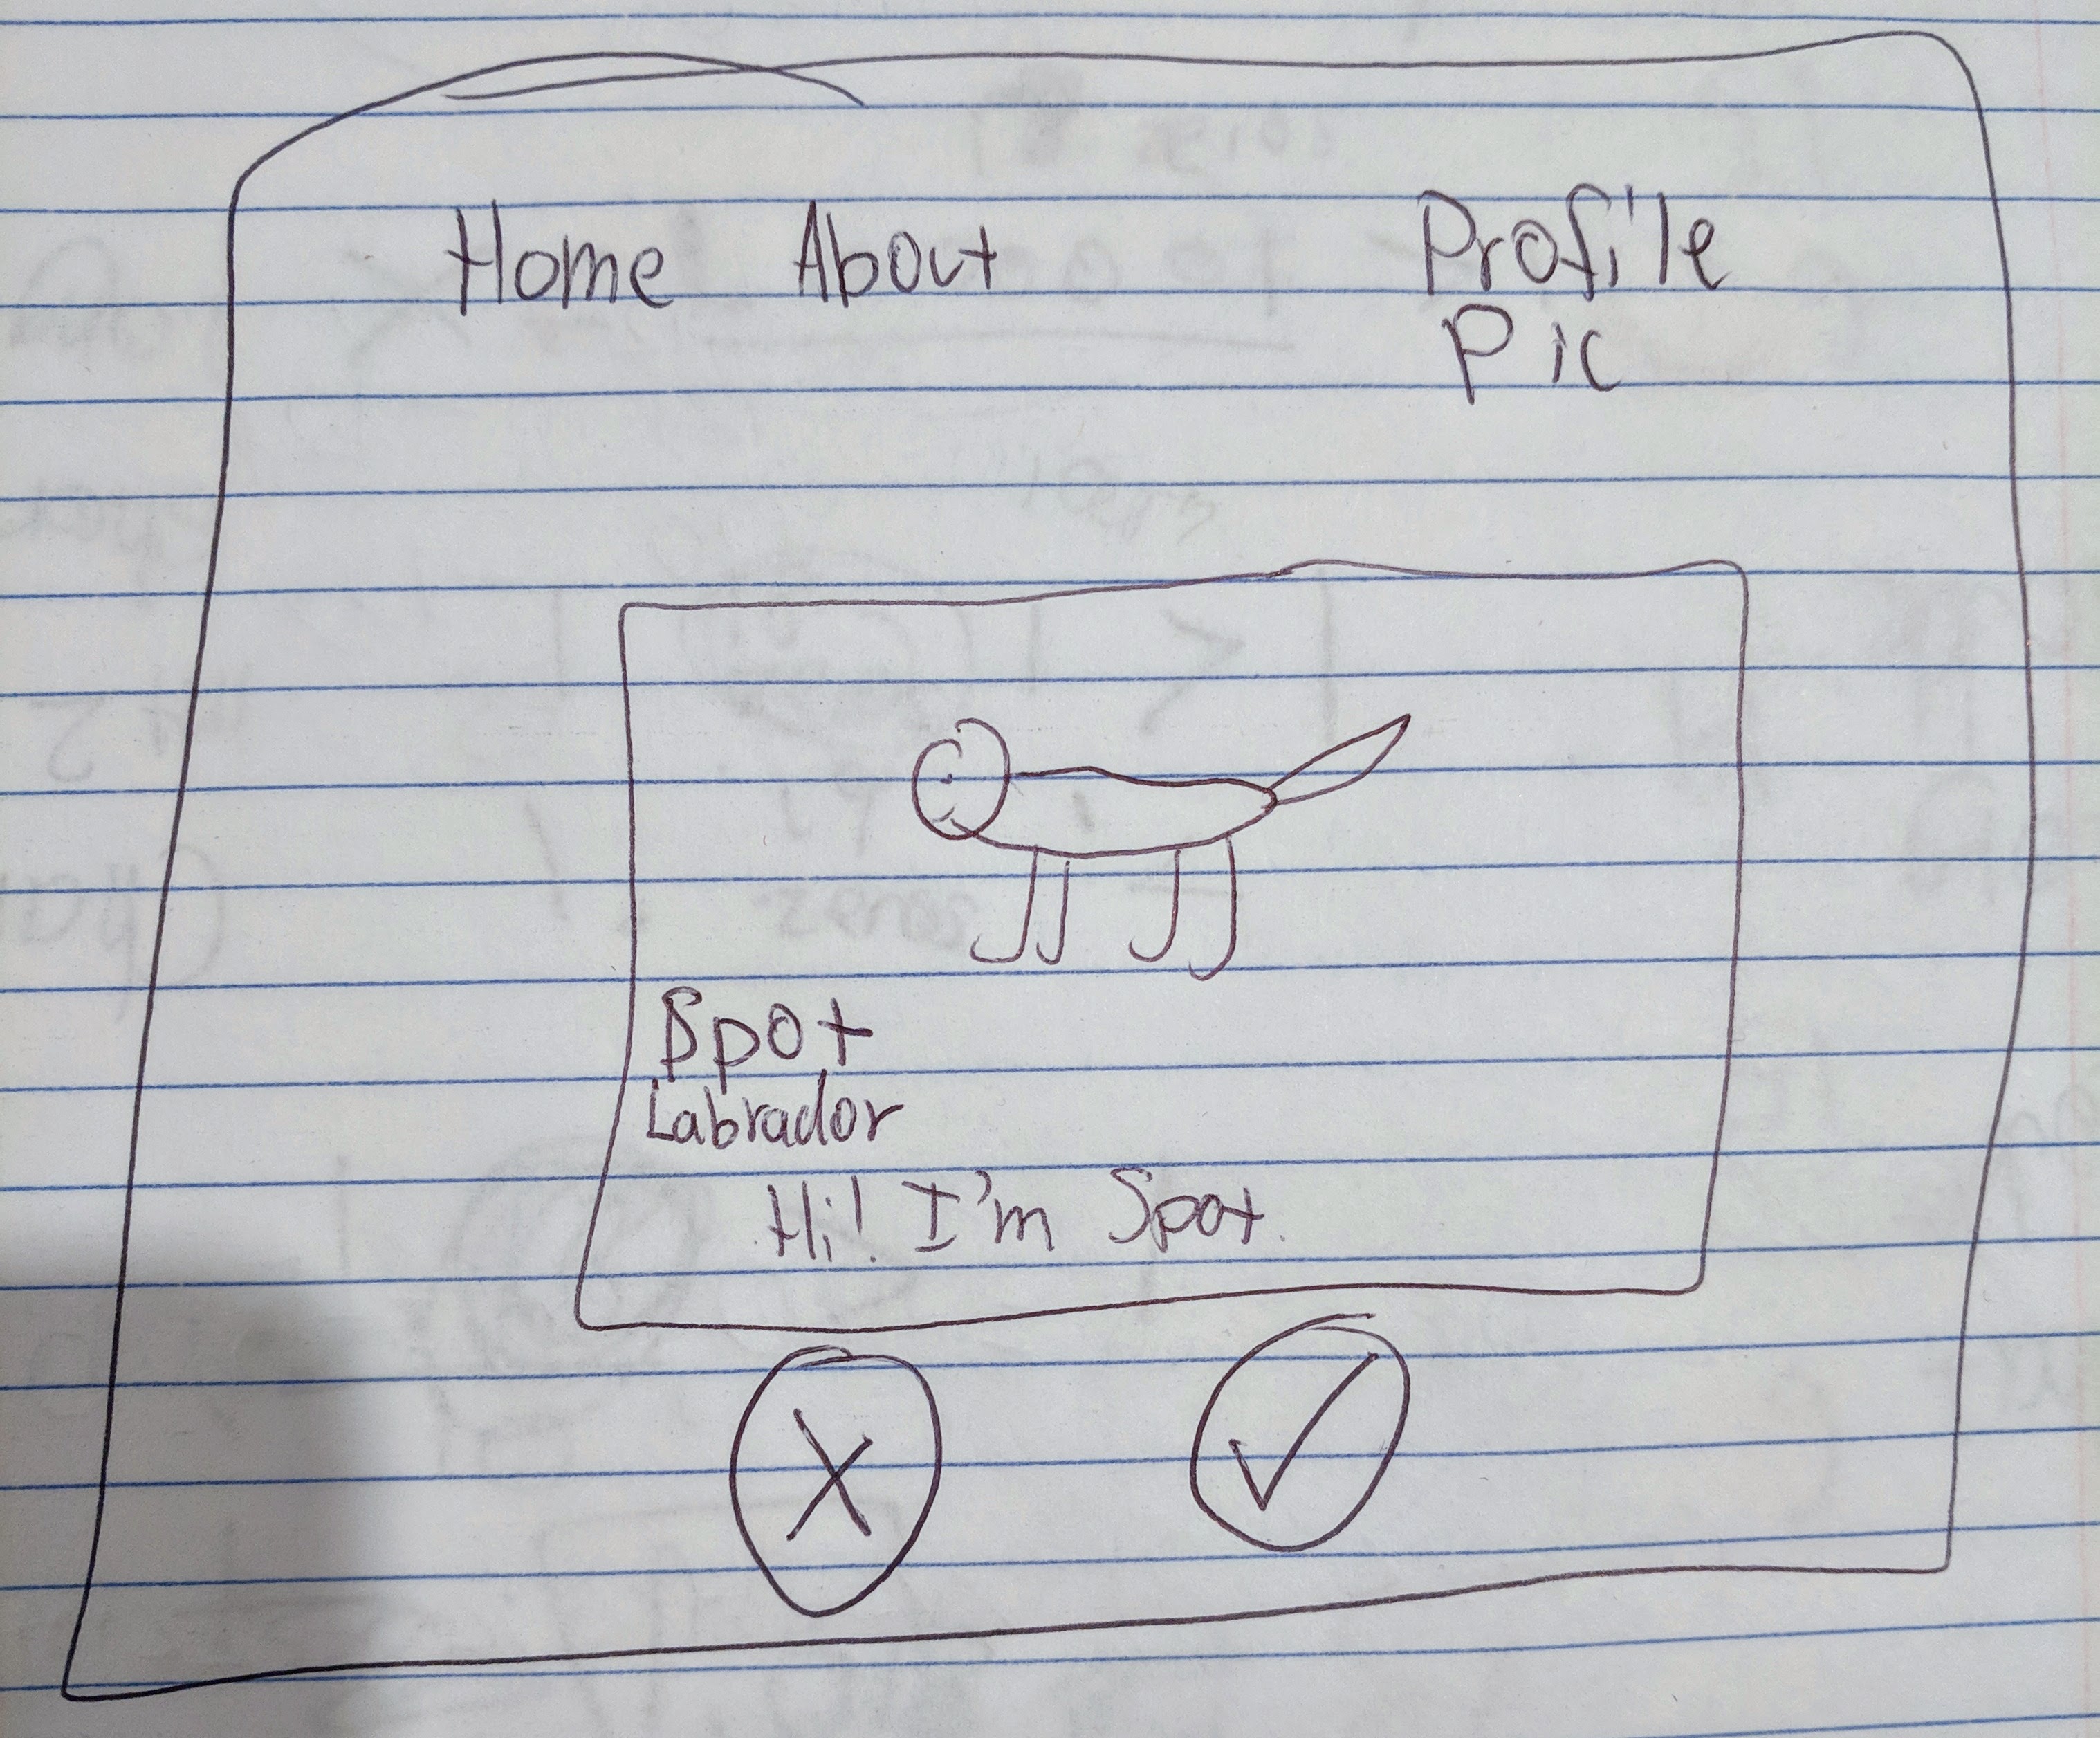 Home About Profile
Pic
Spot
Labrador
Hi! I'm Spot.
X ✓